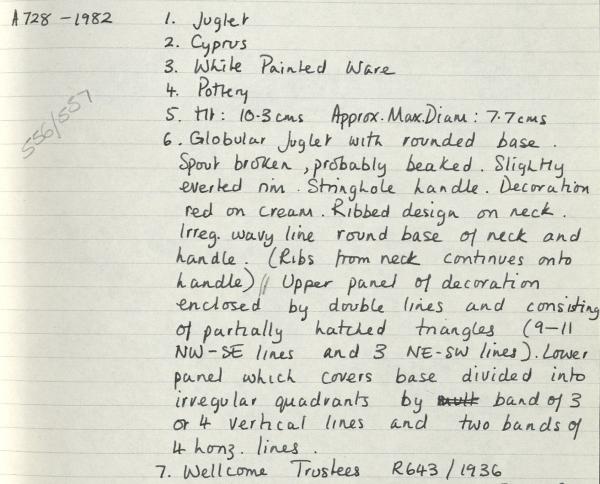 A728-1982 1. Juglet
2. Cyprus
3. White Painted Ware
4. Pottery
556/557
5. Ht: 10.3cms Approx. Max. Diam: 7.7cms
6. Globular Juglet with rounded base.
Spout broken, probably beaked. Slightly
everted rim. Stringhole handle. Decoration
red on cream. Ribbed design on neck.
Irreg. wavy line round base of neck and
handle. (Ribs from neck continues onto
handle) // Upper panel of decoration
enclosed by double lines and consisting
of partially hatched triangles (9-11
NW-SE lines and 3 NE-SW lines). Lower
panel which covers base divided into
irregular quadrants by band of 3
or 4 vertical lines and two bands of
4 horiz. lines.
7. Wellcome Trustees R643/1936